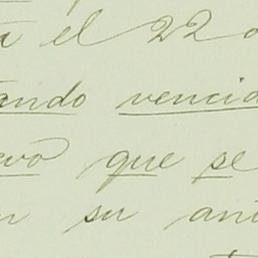 a el 22 d
ando vencid
evo que se
n su ant